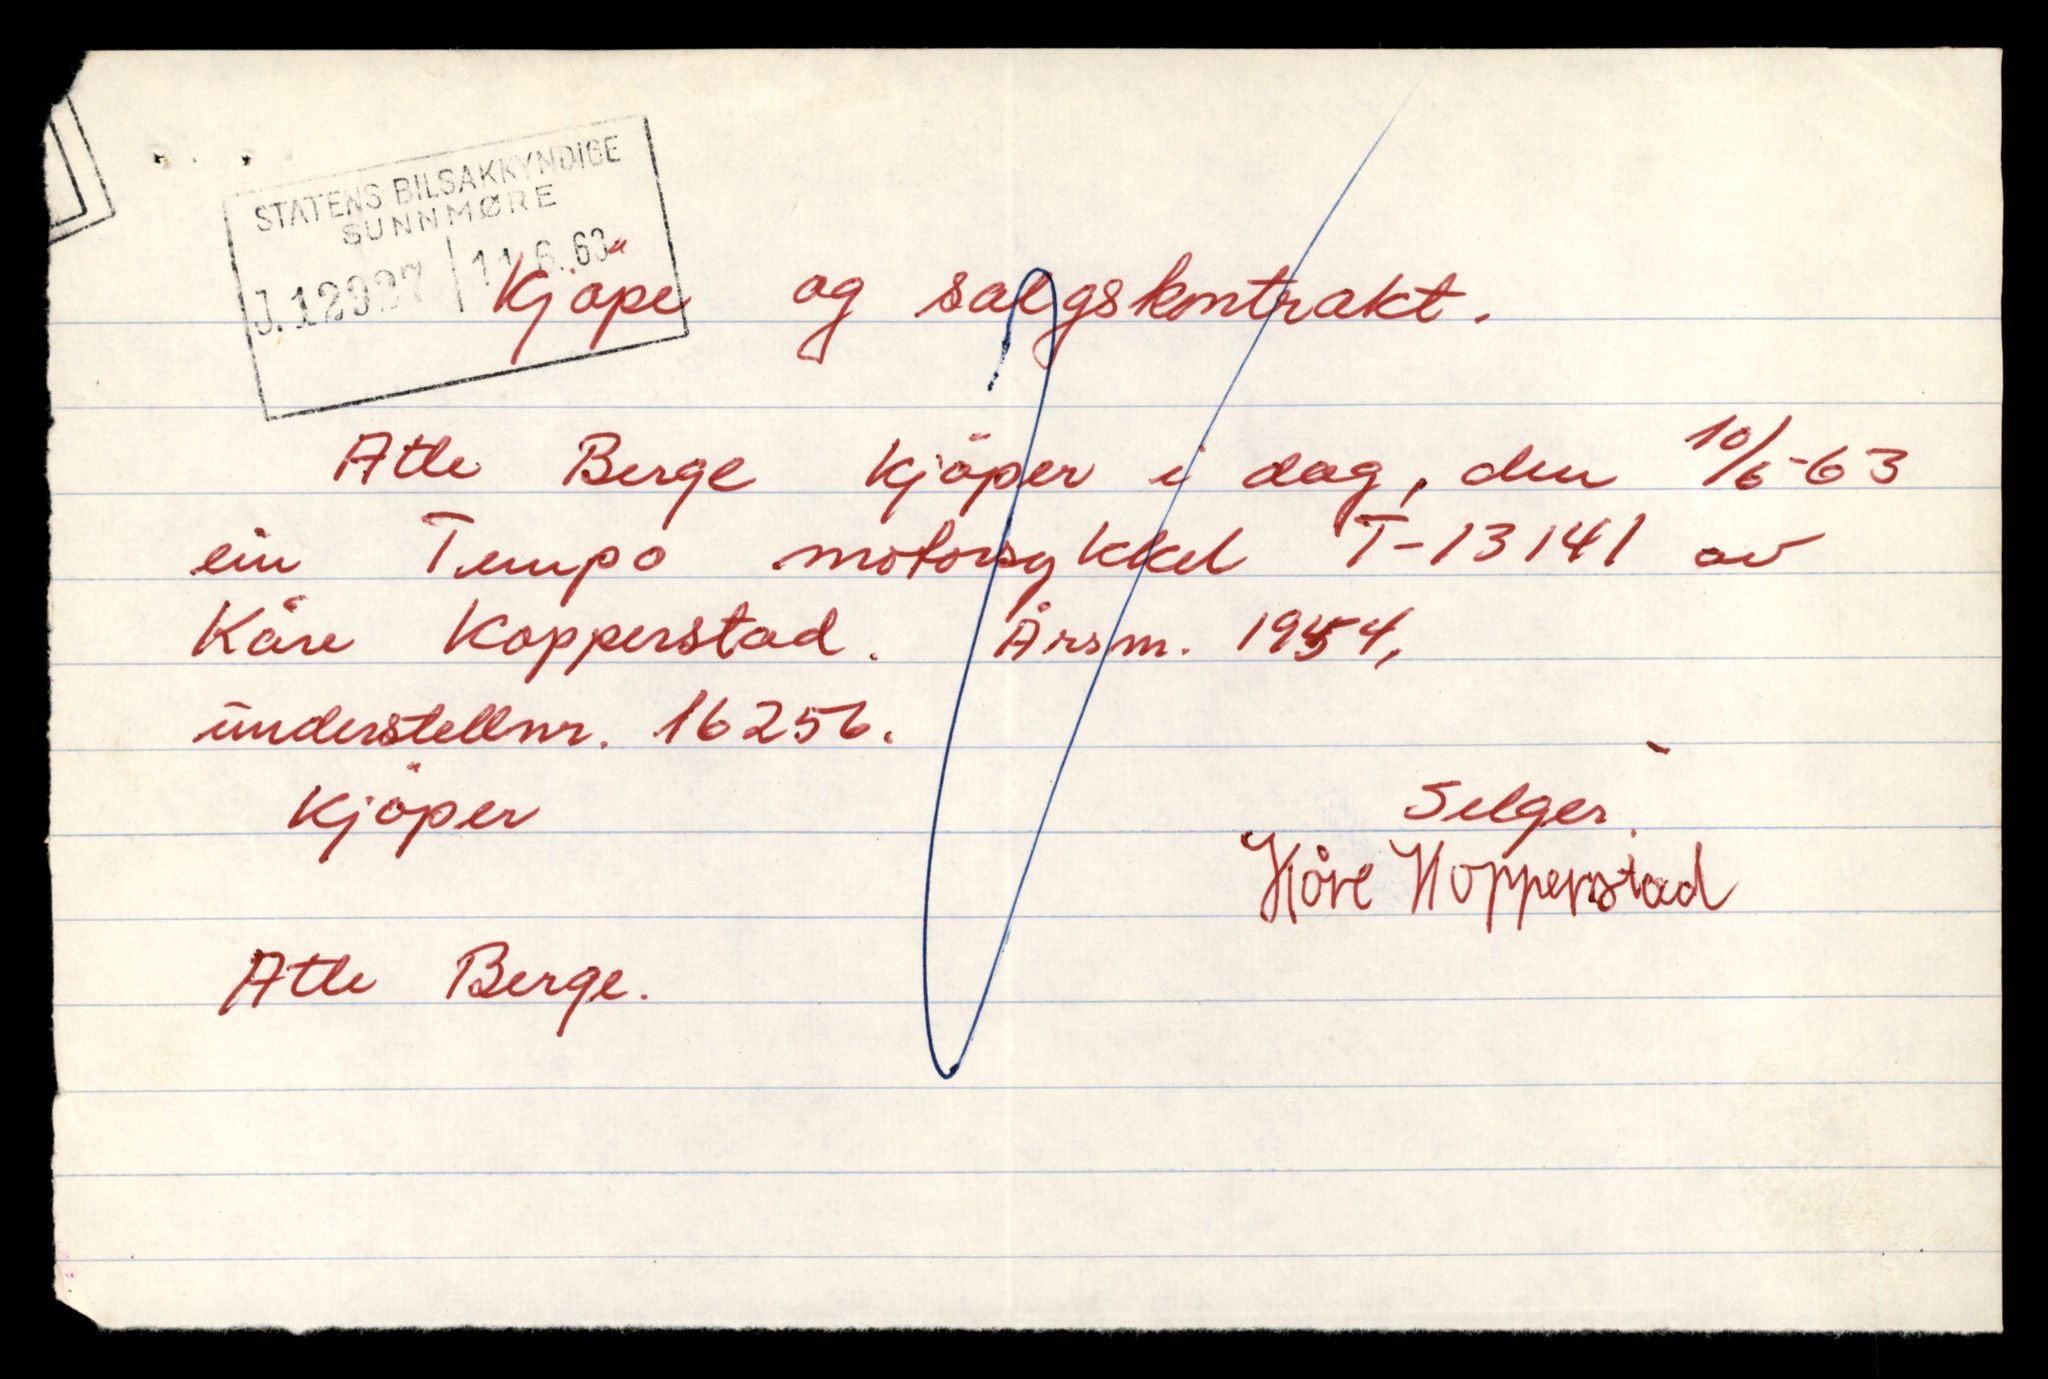 STATENS BILSAKKYNDIGE
SUNNMØRE
11.6.63
Kjöpe og salgskontrakt.
Atle Berge kjöper i dag, den 10/6-63
ein Tempo motorsykkel T-13141 av
Kåre Kopperstad. Årsm. 1954,
understellnr. 16256.
Kjöper
Selger.
Kåre Kopperstad
Atle Berge.